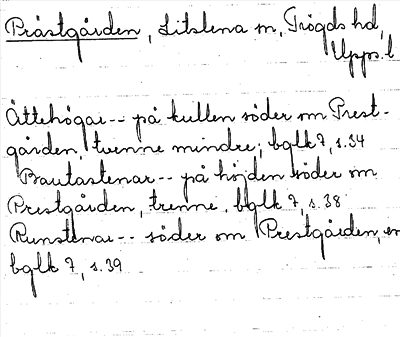 Prästgården, Litslena sn, Trögds hd,
Upps. l
Ättehögar -- på kullen söder om Prest-
gården, tvenne mindre; bglk 7, s.34
Bautastenar -- på höjden söder om
Prestgården, trenne, bglk 7, s.38
Runstenar -- söder om Prestgården, en
bglk 7, s.39